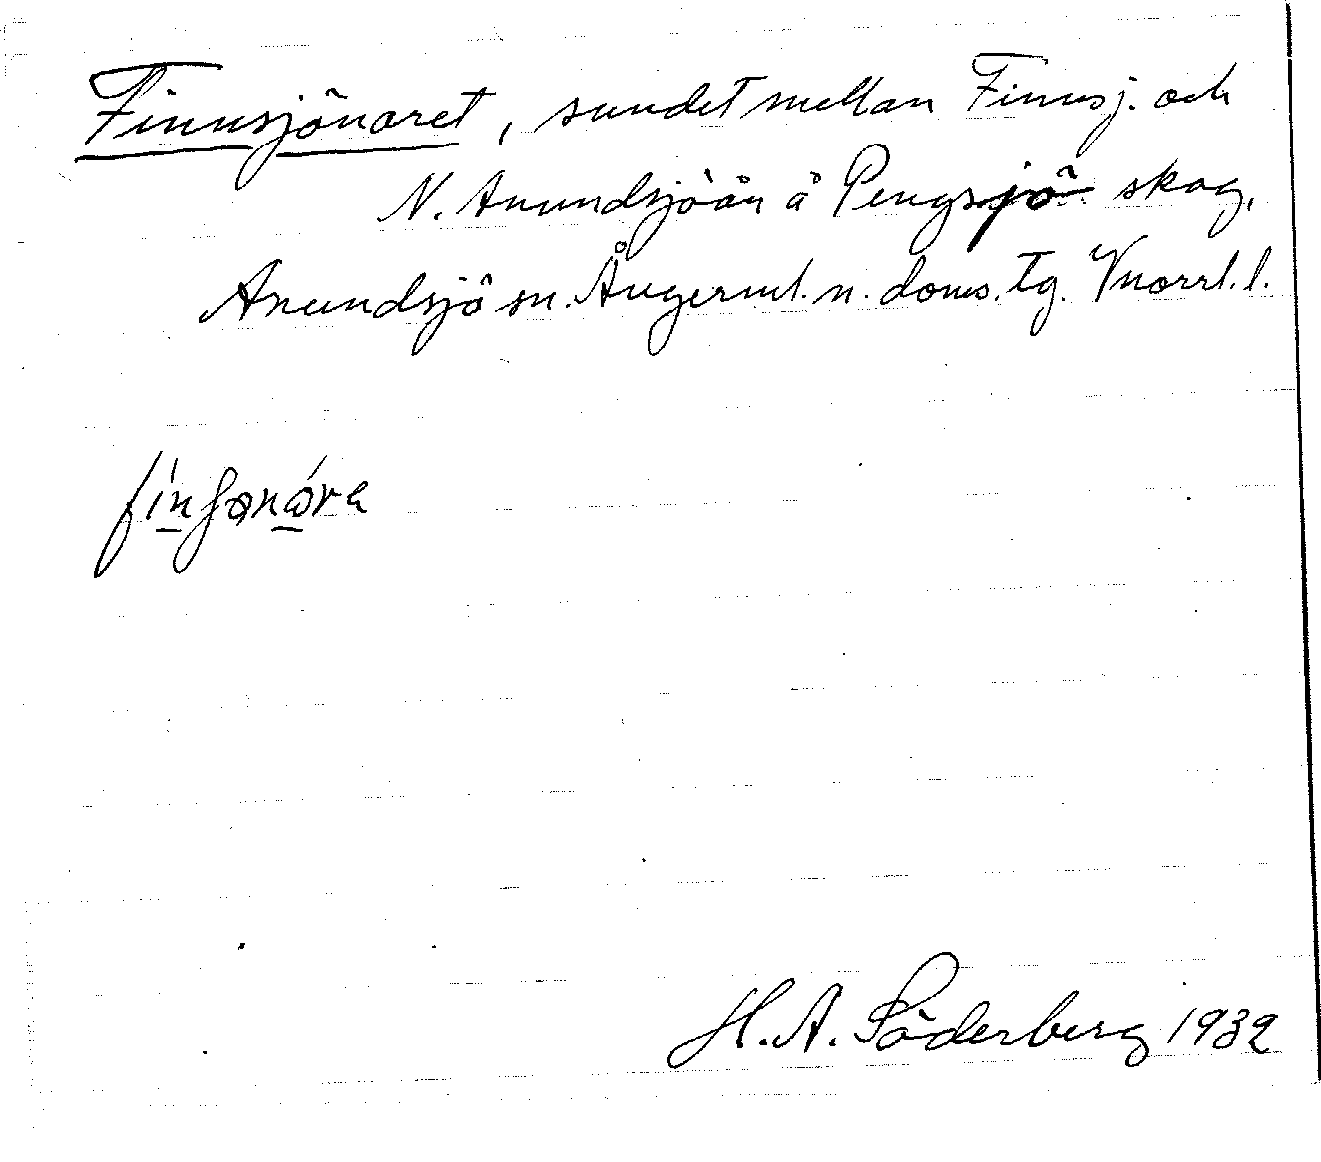 Finnsjönaret, sundet mellan Finnsj. och
N. Anundsjöån å Pengsjö skog,
Anundsjö sn. Ångerml. n. doms. tg. Vnorrl. l.
H. A. Söderberg 1932